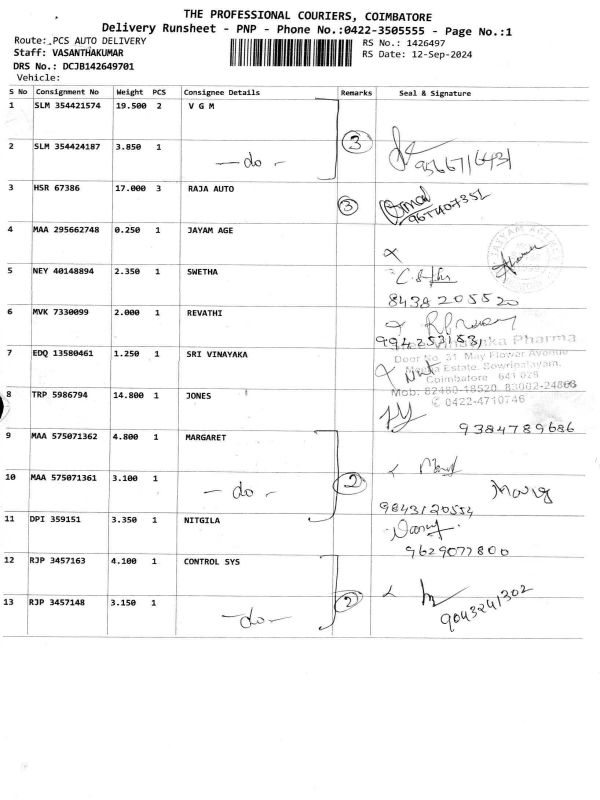 THE PROFESSIONAL COURIERS, COIMBATORE
Delivery Runsheet - PNP - Phone No.:0422-3505555 - Page No.:1
Route: PCS AUTO DELIVERY RS No.: 1426497
Staff: VASANTHAKUMAR RS Date: 12-Sep-2024
DRS No.: DCJB142649701
Vehicle:
S No Consignment No Weight PCS Consignee Details Remarks Seal & Signature
1 SLM 354421574 19.500 2 V G M
3
2 SLM 354424187 3.850 1 —do—
3 HSR 67386 17.000 3 RAJA AUTO
3
4 MAA 295662748 0.250 1 JAYAM AGE
5 NEY 40148894 2.350 1 SWETHA
8438205520
6 MVK 7330099 2.000 1 REVATHI
7 EDQ 13580461 1.250 1 SRI VINAYAKA
Pharma
Door No. 31 May Flower Avenue
Estate, Sowripalayam,
Coimbatore 641 028
Mob: 82480-18520, 83002-24866
✆ 0422-4710746
8 TRP 5986794 14.800 1 JONES
9384789686
9 MAA 575071362 4.800 1 MARGARET
10 MAA 575071361 3.100 1 —do— 2
9843120554
11 DPI 359151 3.350 1 NITGILA
9629077800
12 RJP 3457163 4.100 1 CONTROL SYS
2
9043241302
13 RJP 3457148 3.150 1 —do—